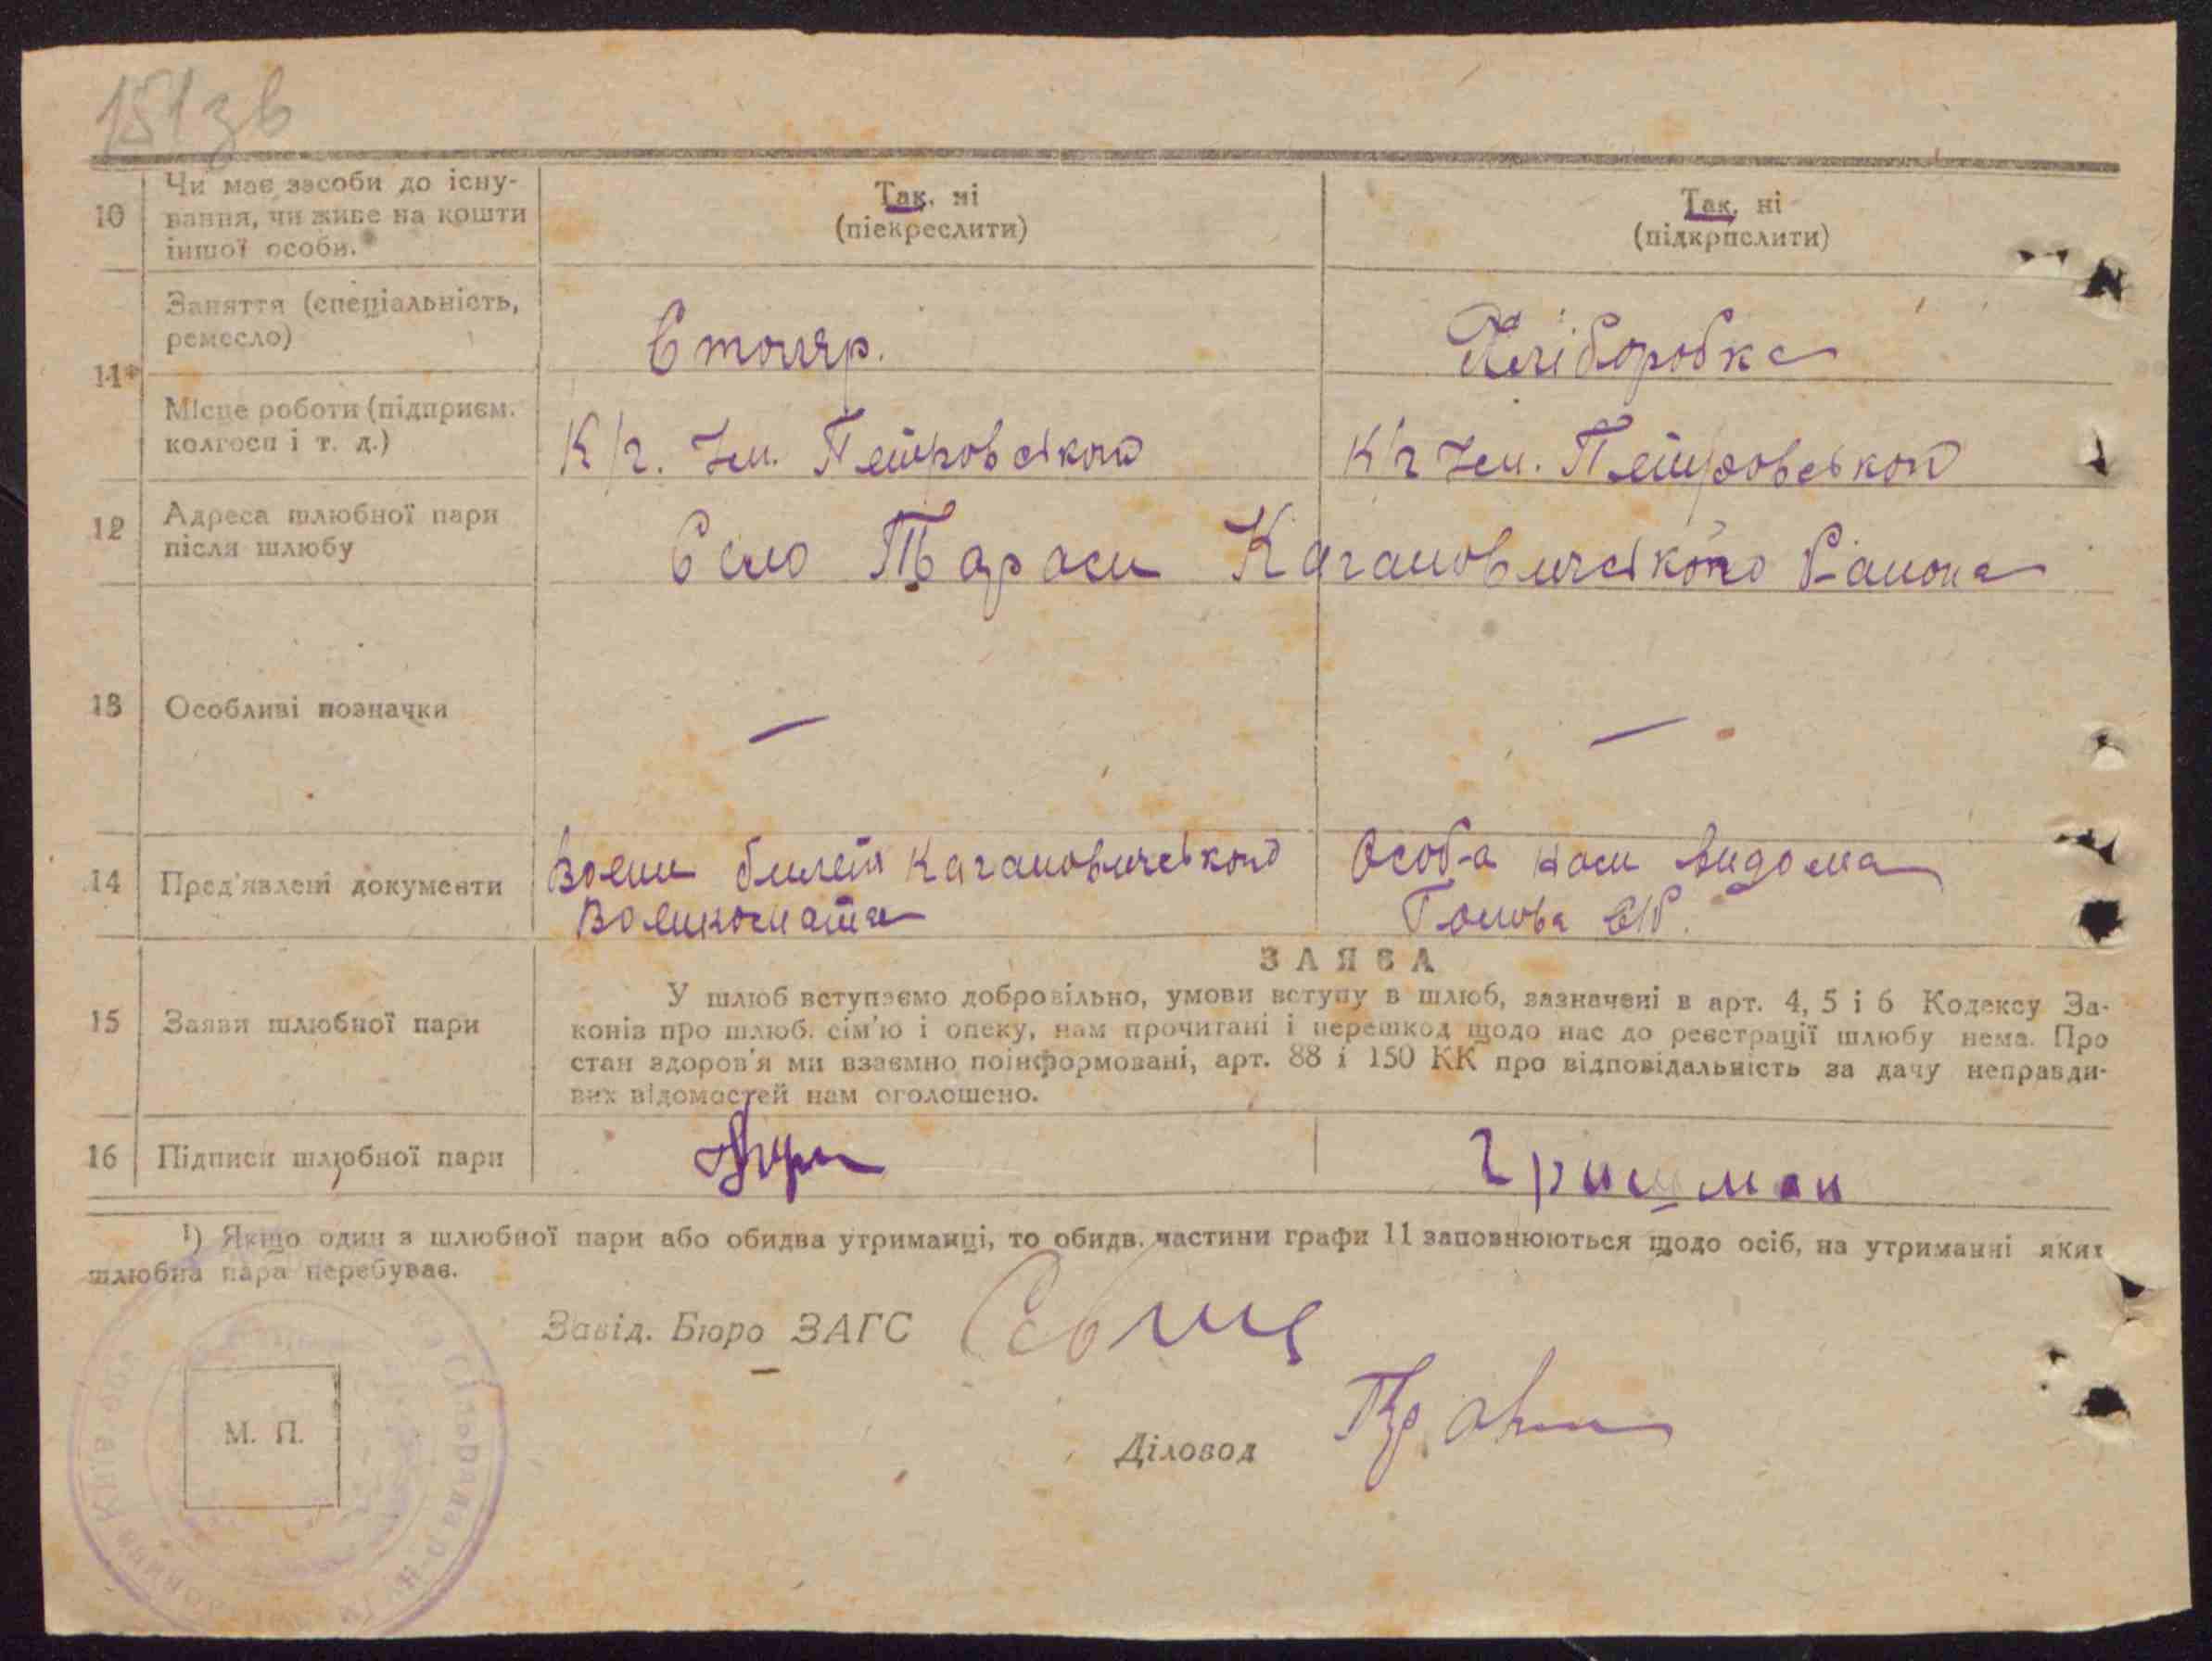 151зв
10
Чи має засоби до існу-
вання, чи живе на кошти
іншої особи.
Так, ні
(піекреслити)
Так, ні
(підкрпслити)
11*
Заняття (спеціальність,
ремесло)
Столяр.
Хліборобка
Місце роботи (підприєм.
колгосп і т. д.)
К/г. Ім. Петровського
К/г Ім. Петровського
12
Адреса шлюбної пари
після шлюбу
Село Тараси Кагановичського Району
13
Особливі позначки
—
—
14
Пред'явлені документи
Воени билет Кагановичського
Воликомата
Особ-а нам видома
Голова С/Р.
15
Заяви шлюбної пари
ЗАЯВА
У шлюб вступаємо добровільно, умови вступу в шлюб, зазначені в арт. 4, 5 і 6 Кодексу За-
конів про шлюб. сім'ю і опеку, нам прочитані і перешкод щодо нас до реєстрації шлюбу нема. Про
стан здоров'я ми взаємно поінформовані, арт. 88 і 150 КК про відповідальність за дачу неправди-
вих відомостей нам оголошено.
16
Підписи шлюбної пари
Гришман
¹) Якщо один з шлюбної пари або обидва утриманці, то обидв. частини графи 11 заповнюються щодо осіб, на утриманні яких
шлюбна пара перебуває.
Завід. Бюро ЗАГС
Діловод
М. П.